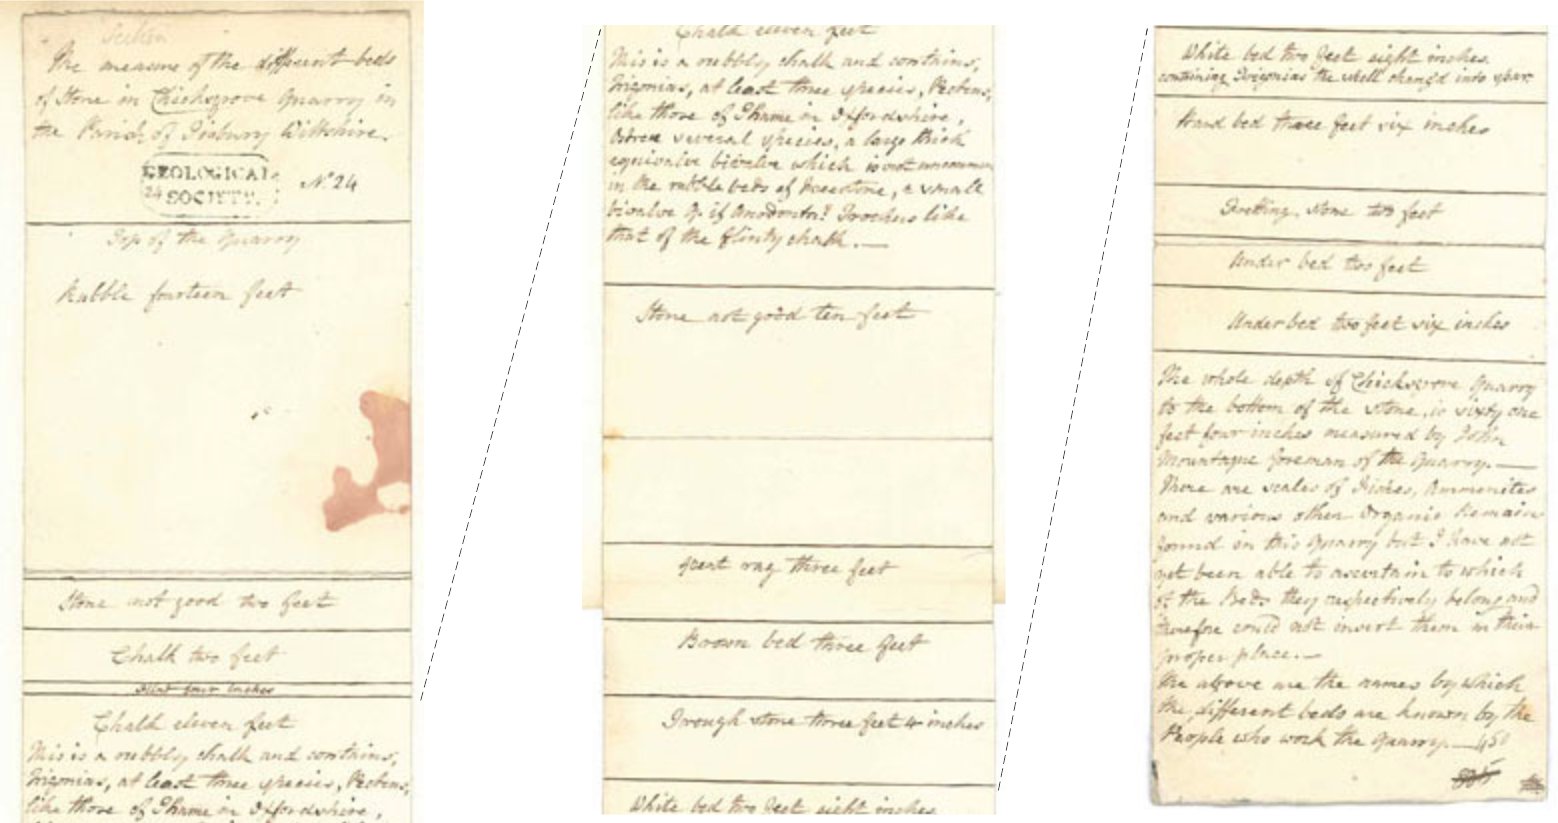 Section
The measure of the different beds
of Stone in Chicksgrove Quarry in
the Parish of Tisbury Wiltshire.
GEOLOGICAL
24 SOCIETY.
No 24
Top of the Quarry
Rubble fourteen feet
Stone not good two feet
Chalk two feet
Flint four inches
Chalk eleven feet
This is a rubbly chalk and contains,
Trigonias, at least three species, Pectens,
like those of Thame in Oxfordshire,
Chalk eleven feet
This is a rubbly chalk and contains,
Trigonias, at least three species, Pectens,
like those of Thame in Oxfordshire,
Ostrea several species, a large thick
equivalve bivalve which is not uncommon
in the rubble beds of freestone, a small
bivalve Q. if Anodonta? Trochus like
that of the flinty chalk.—
Stone not good ten feet
rag three feet
Brown bed three feet
Trough stone three feet 4 inches
White bed two feet eight inches
White bed two feet eight inches
containing Trigonias the shell changed into spar.
Hard bed three feet six inches
Fretting stone two feet
Under bed two feet
Under bed two feet six inches
The whole depth of Chicksgrove Quarry
to the bottom of the stone, is sixty one
feet four inches measured by John
Mountague foreman of the Quarry.—
There are scales of Fishes, Ammonites
and various other Organic Remains
found in this Quarry but I have not
yet been able to ascertain to which
of the Beds they respectively belong and
therefore could not insert them in their
proper place.—
The above are the names by which
the different beds are known by the
People who work the Quarry.—